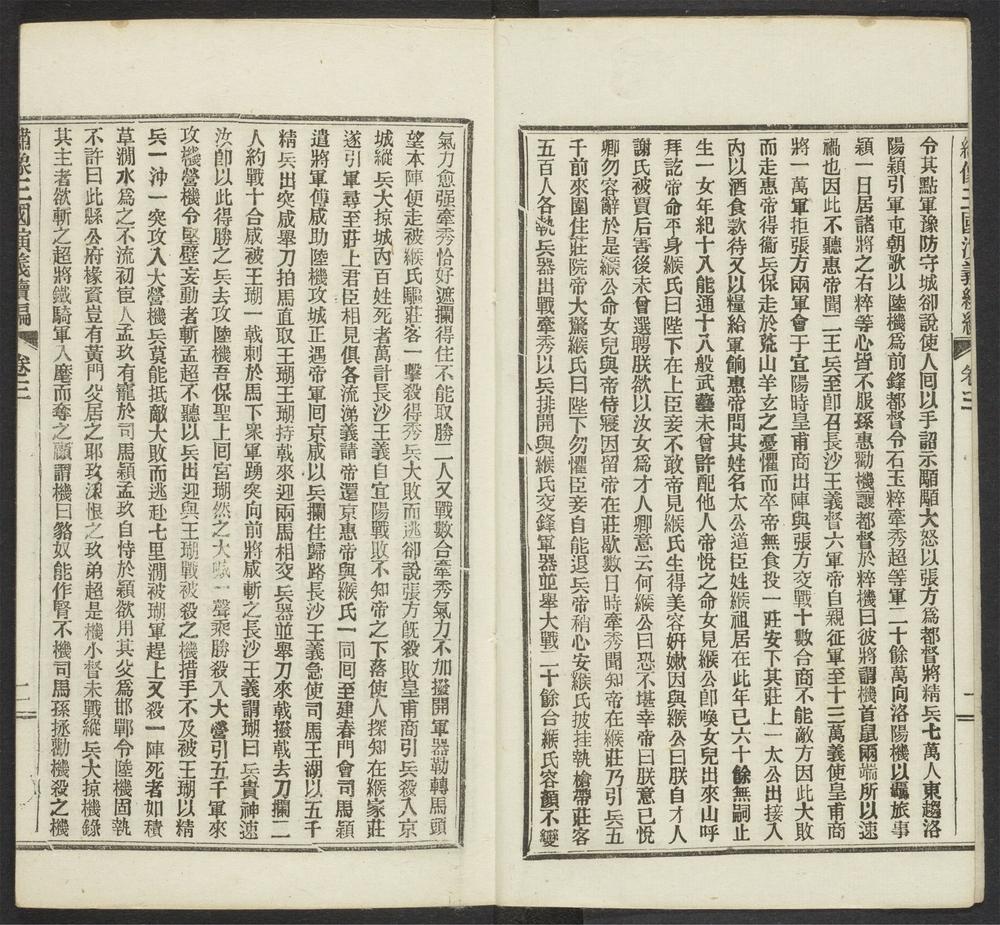 令其點軍豫防守城卻說使人回以手詔示顒顒大怒以張方爲都督將精兵七萬人東趨洛
陽穎引軍屯朝歌以陸機爲前鋒都督令石玉粹牽秀超等軍二十餘萬向洛陽機以羈旅事
穎一日居諸將之右粹等心皆不服孫惠勸機讓都督於粹機曰彼將謂機首鼠兩端所以速
禍也因此不聽惠帝聞二王兵至卽召長沙王義督六軍帝自親征軍至十三萬義使皇甫商
將一萬軍拒張方兩軍會于宜陽時皇甫商出陣與張方交戰十數合商不能敵方因此大敗
而走惠帝得衞兵保走於荒山羊玄之憂懼而卒帝無食投一莊安下其莊上一太公出接入
內以酒食款待又以糧給軍餉惠帝問其姓名太公道臣姓緱祖居在此年已六十餘無嗣止
生一女年紀十八能通十八般武藝未曾許配他人帝悅之命女見緱公卽喚女兒出來山呼
拜訖帝命平身緱氏曰陛下在上臣妾不敢帝見緱氏生得美容妍嫩因與緱公曰朕自才人
謝氏被賈后害後未曾選聘朕欲以汝女爲才人卿意云何緱公曰恐不堪幸帝曰朕意已悅
卿勿容辭於是緱公命女兒與帝侍寢因留帝在莊歇數日時牽秀聞知帝在緱莊乃引兵五
千前來圍住莊院帝大驚緱氏曰陛下勿懼臣妾自能退兵帝稍心安緱氏披挂執槍帶莊客
五百人各執兵器出戰牽秀以兵排開與緱氏交鋒軍器並舉大戰二十餘合緱氏容顏不變
氣力愈强牽秀恰好遮攔得住不能取勝二人又戰數合牽秀氣力不加撥開軍器勒轉馬頭
望本陣便走被緱氏驅莊客一擊殺得秀兵大敗而逃卻說張方旣殺敗皇甫商引兵殺入京
城縱兵大掠城內百姓死者萬計長沙王義自宜陽戰敗不知帝之下落使人探知在緱家莊
遂引軍尋至莊上君臣相見俱各流涕義請帝還京惠帝與緱氏一同回至建春門會司馬穎
遣將軍傅咸助陸機攻城正遇帝軍回京咸以兵攔住歸路長沙王義急使司馬王湖以五千
精兵出突咸舉刀拍馬直取王瑚王瑚持戟來迎兩馬相交兵器並舉刀來戟撥戟去刀攔二
人約戰十合咸被王瑚一戟刺於馬下衆軍踴突向前將咸斬之長沙王義謂瑚曰兵貴神速
汝卽以此得勝之兵去攻陸機吾保聖上回宮瑚然之大喊一聲乘勝殺入大營引五千軍來
攻機營機令堅壁妄動者斬孟超不聽以兵出迎與王瑚戰被殺之機措手不及被王瑚以精
兵一沖一突攻入大營機兵莫能抵敵大敗而逃赴七里澗被瑚軍趕上又殺一陣死者如積
草澗水爲之不流初宦人孟玖有寵於司馬穎孟玖自恃於穎欲用其父爲邯鄲令陸機固執
不許曰此縣公府掾資豈有黃門父居之耶玖深恨之玖弟超是機小督未戰縱兵大掠機錄
其主者欲斬之超將鐵騎軍入麾而奪之顧謂機曰貉奴能作督不機司馬孫拯勸機殺之機
繡像三國演義續編 卷三 二